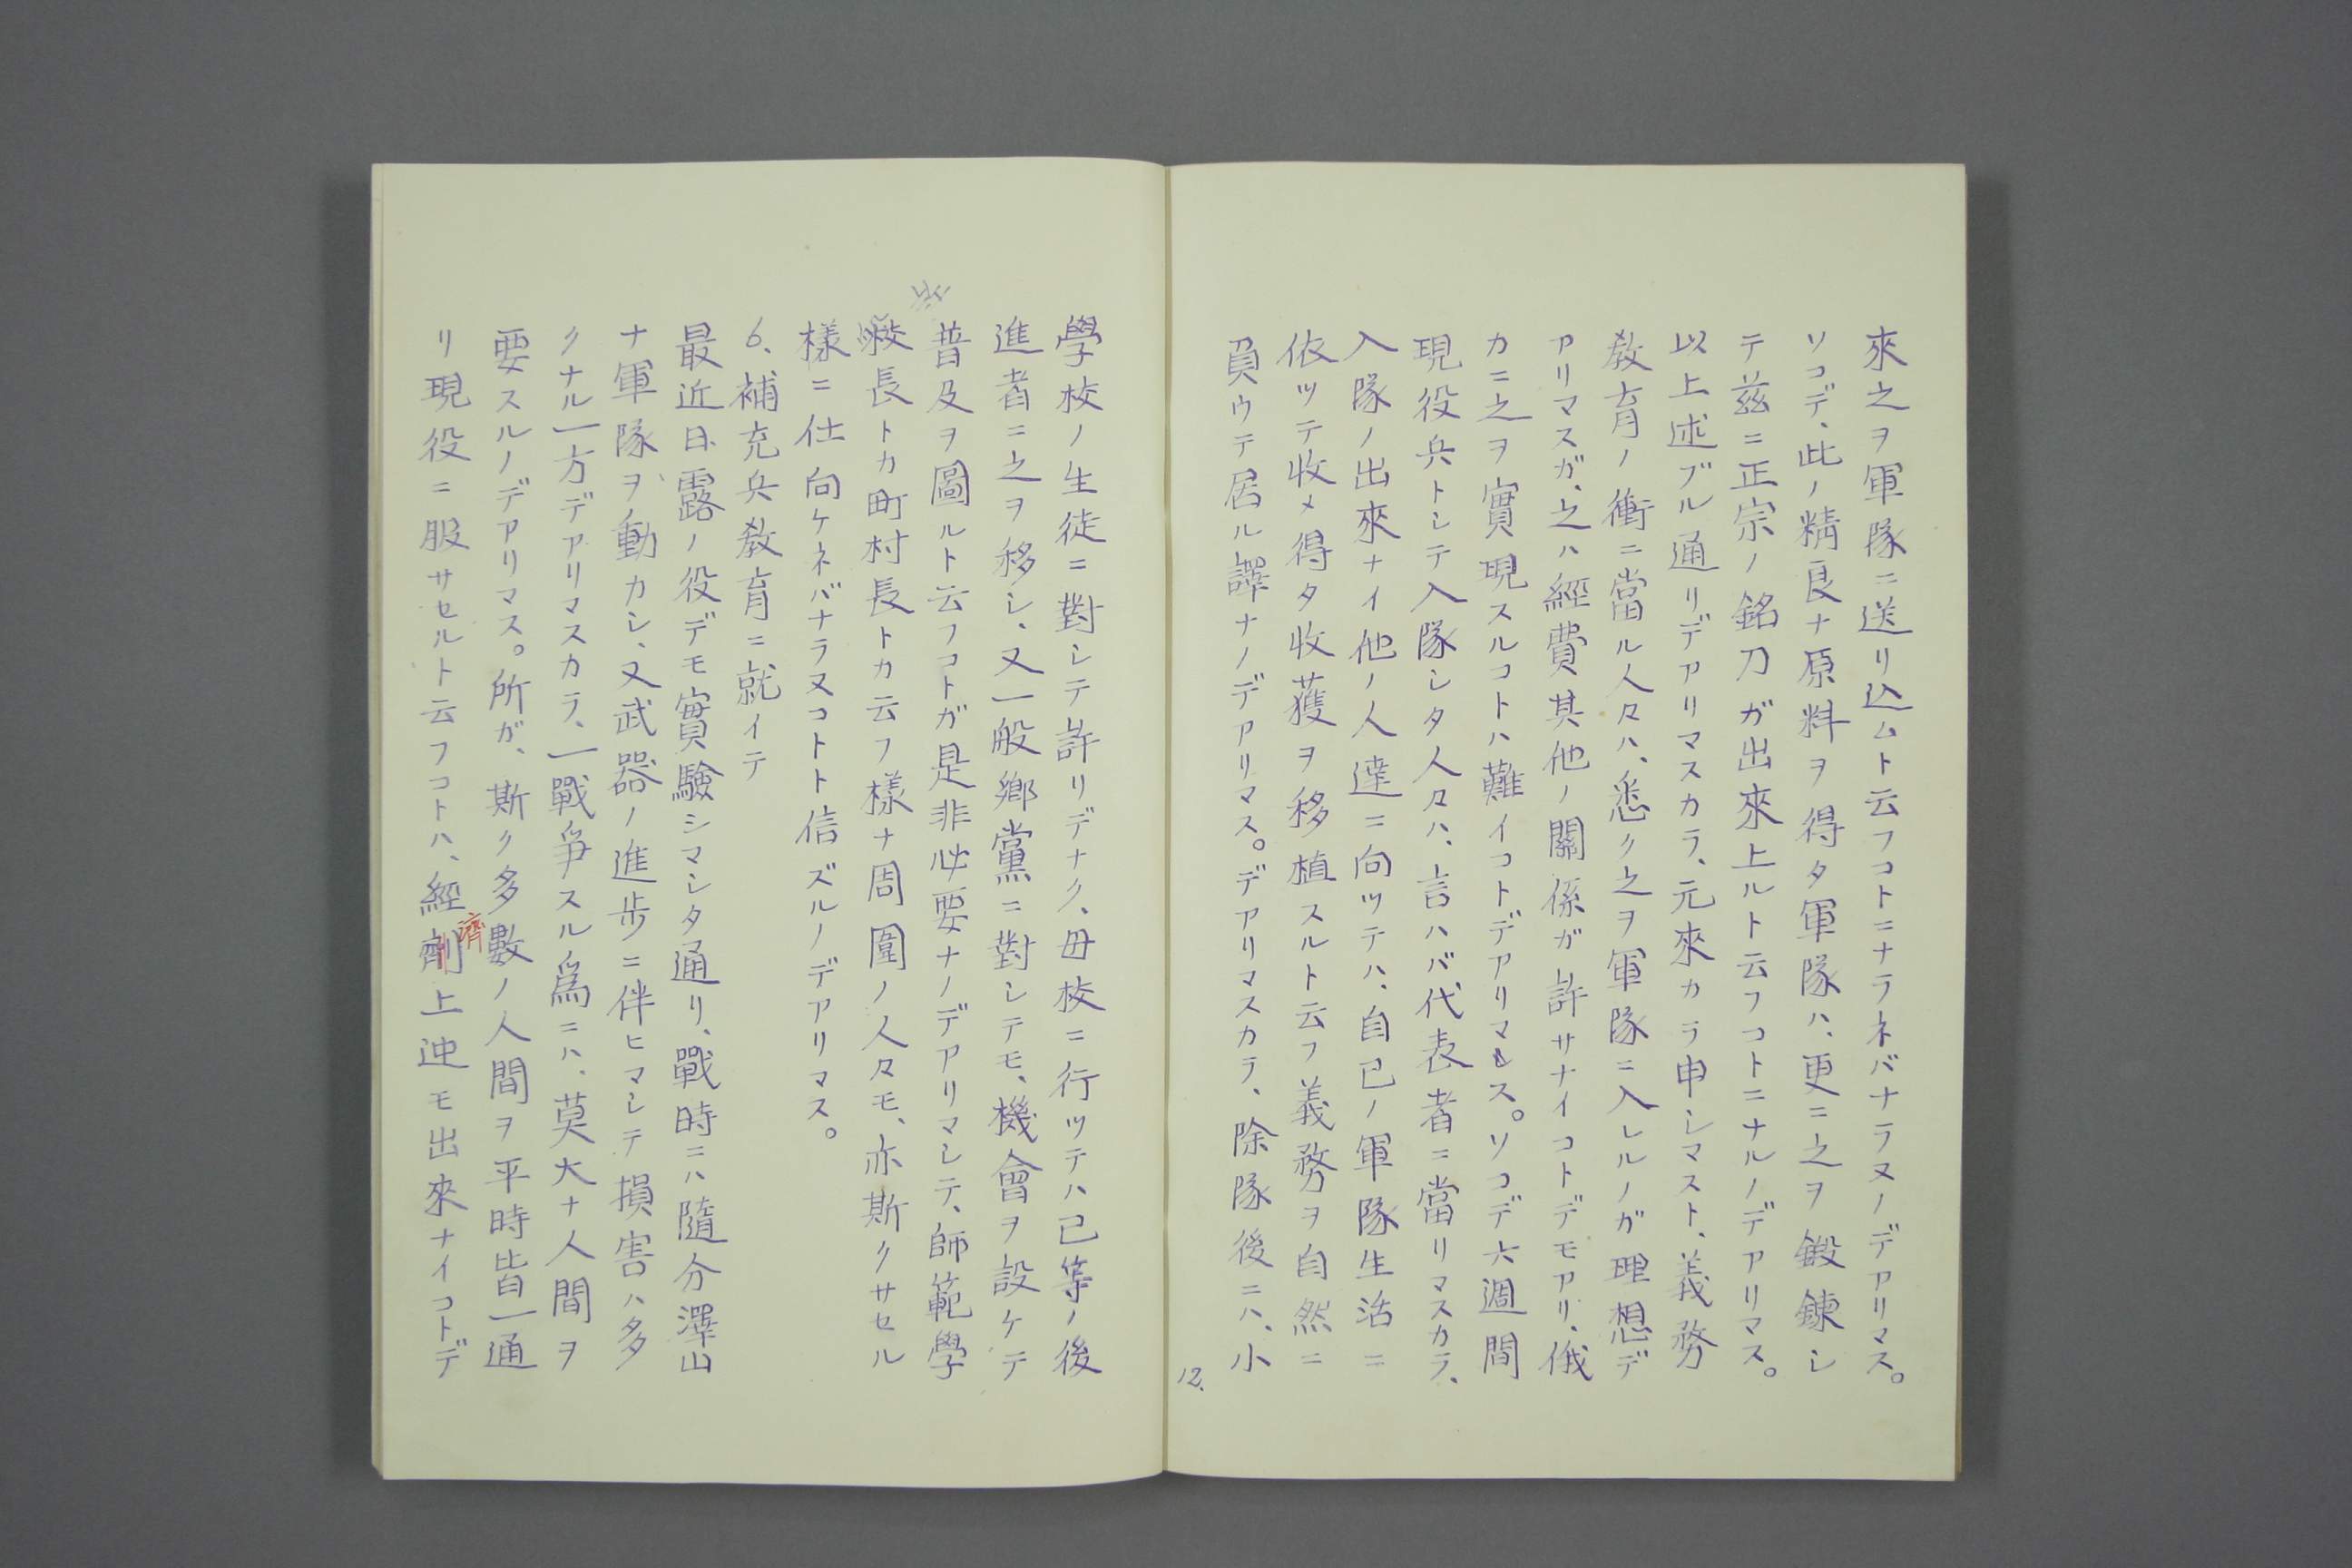 來之ヲ軍隊ニ送リ込ムト云フコトニナラネバナラヌノデアリマス。
ソコデ、此ノ精良ナ原料ヲ得タ軍隊ハ、更ニ之ヲ鍛錬シ
テ茲ニ正宗ノ銘刀ガ出來上ルト云フコトニナルノデアリマス。
以上述ブル通リデアリマスカラ、元來カラ申シマスト、義務
教育ノ衝ニ當ル人々ハ、悉ク之ヲ軍隊ニ入レルノガ理想デ
アリマスガ、之ハ經費其他ノ關係ガ許サナイコトデモアリ、俄
カニ之ヲ實現スルコトハ難イコトデアリマス。ソコデ六週間
現役兵トシテ入隊シタ人々ハ、言ハバ代表者ニ當リマスカラ、
入隊ノ出來ナイ他ノ人達ニ向ツテハ、自己ノ軍隊生活ニ
依ツテ收メ得タ收獲ヲ移植スルト云フ義務ヲ自然ニ
負ウテ居ル譯ナノデアリマス。デアリマスカラ、除隊後ニハ、小
12.
學校ノ生徒ニ對シテ許リデナク、母校ニ行ツテハ己等ノ後
進者ニ之ヲ移シ、又一般鄉黨ニ對シテモ、機會ヲ設ケテ
普及ヲ圖ルト云フコトガ是非必要ナノデアリマシテ、師範學
校長トカ町村長トカ云フ樣ナ周圍ノ人々モ、亦斯クサセル
樣ニ仕向ケネバナラヌコトト信ズルノデアリマス。
6、補充兵教育ニ就イテ
最近日露ノ役デモ實驗シマシタ通リ、戰時ニハ隨分澤山
ナ軍隊ヲ動カシ、又武器ノ進步ニ伴ヒマシテ損害ハ多
クナル一方デアリマスカラ、一戰爭スル爲ニハ、莫大ナ人間ヲ
要スルノデアリマス。所ガ、斯ク多數ノ人間ヲ平時皆一通
リ現役ニ服サセルト云フコトハ、經濟上迚モ出來ナイコトデ